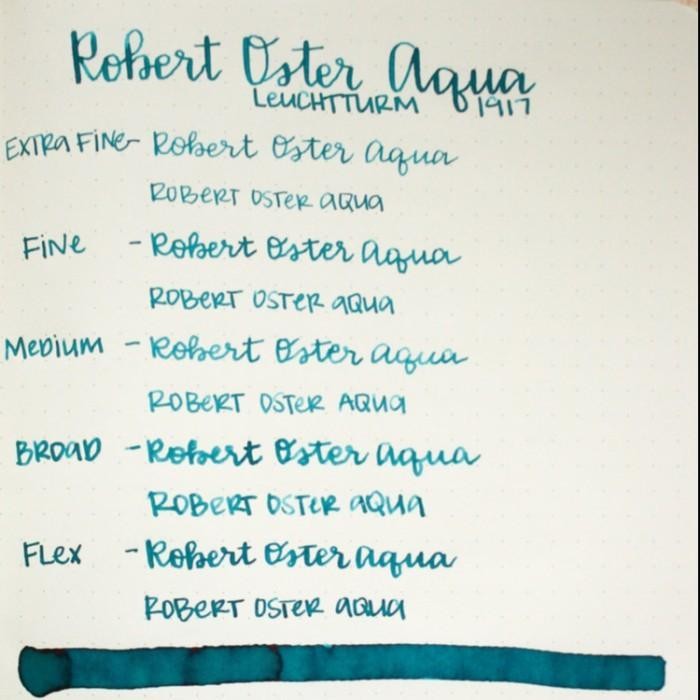 Robert Oster Aqua
LEUCHTTURM 1917
EXTRA FINE - Robert Oster Aqua
ROBERT OSTER AQUA
FINE - Robert Oster Aqua
ROBERT OSTER AQUA
MEDIUM - Robert Oster Aqua
ROBERT OSTER AQUA
BROAD - Robert Oster Aqua
ROBERT OSTER AQUA
FLEX - Robert Oster Aqua
ROBERT OSTER AQUA